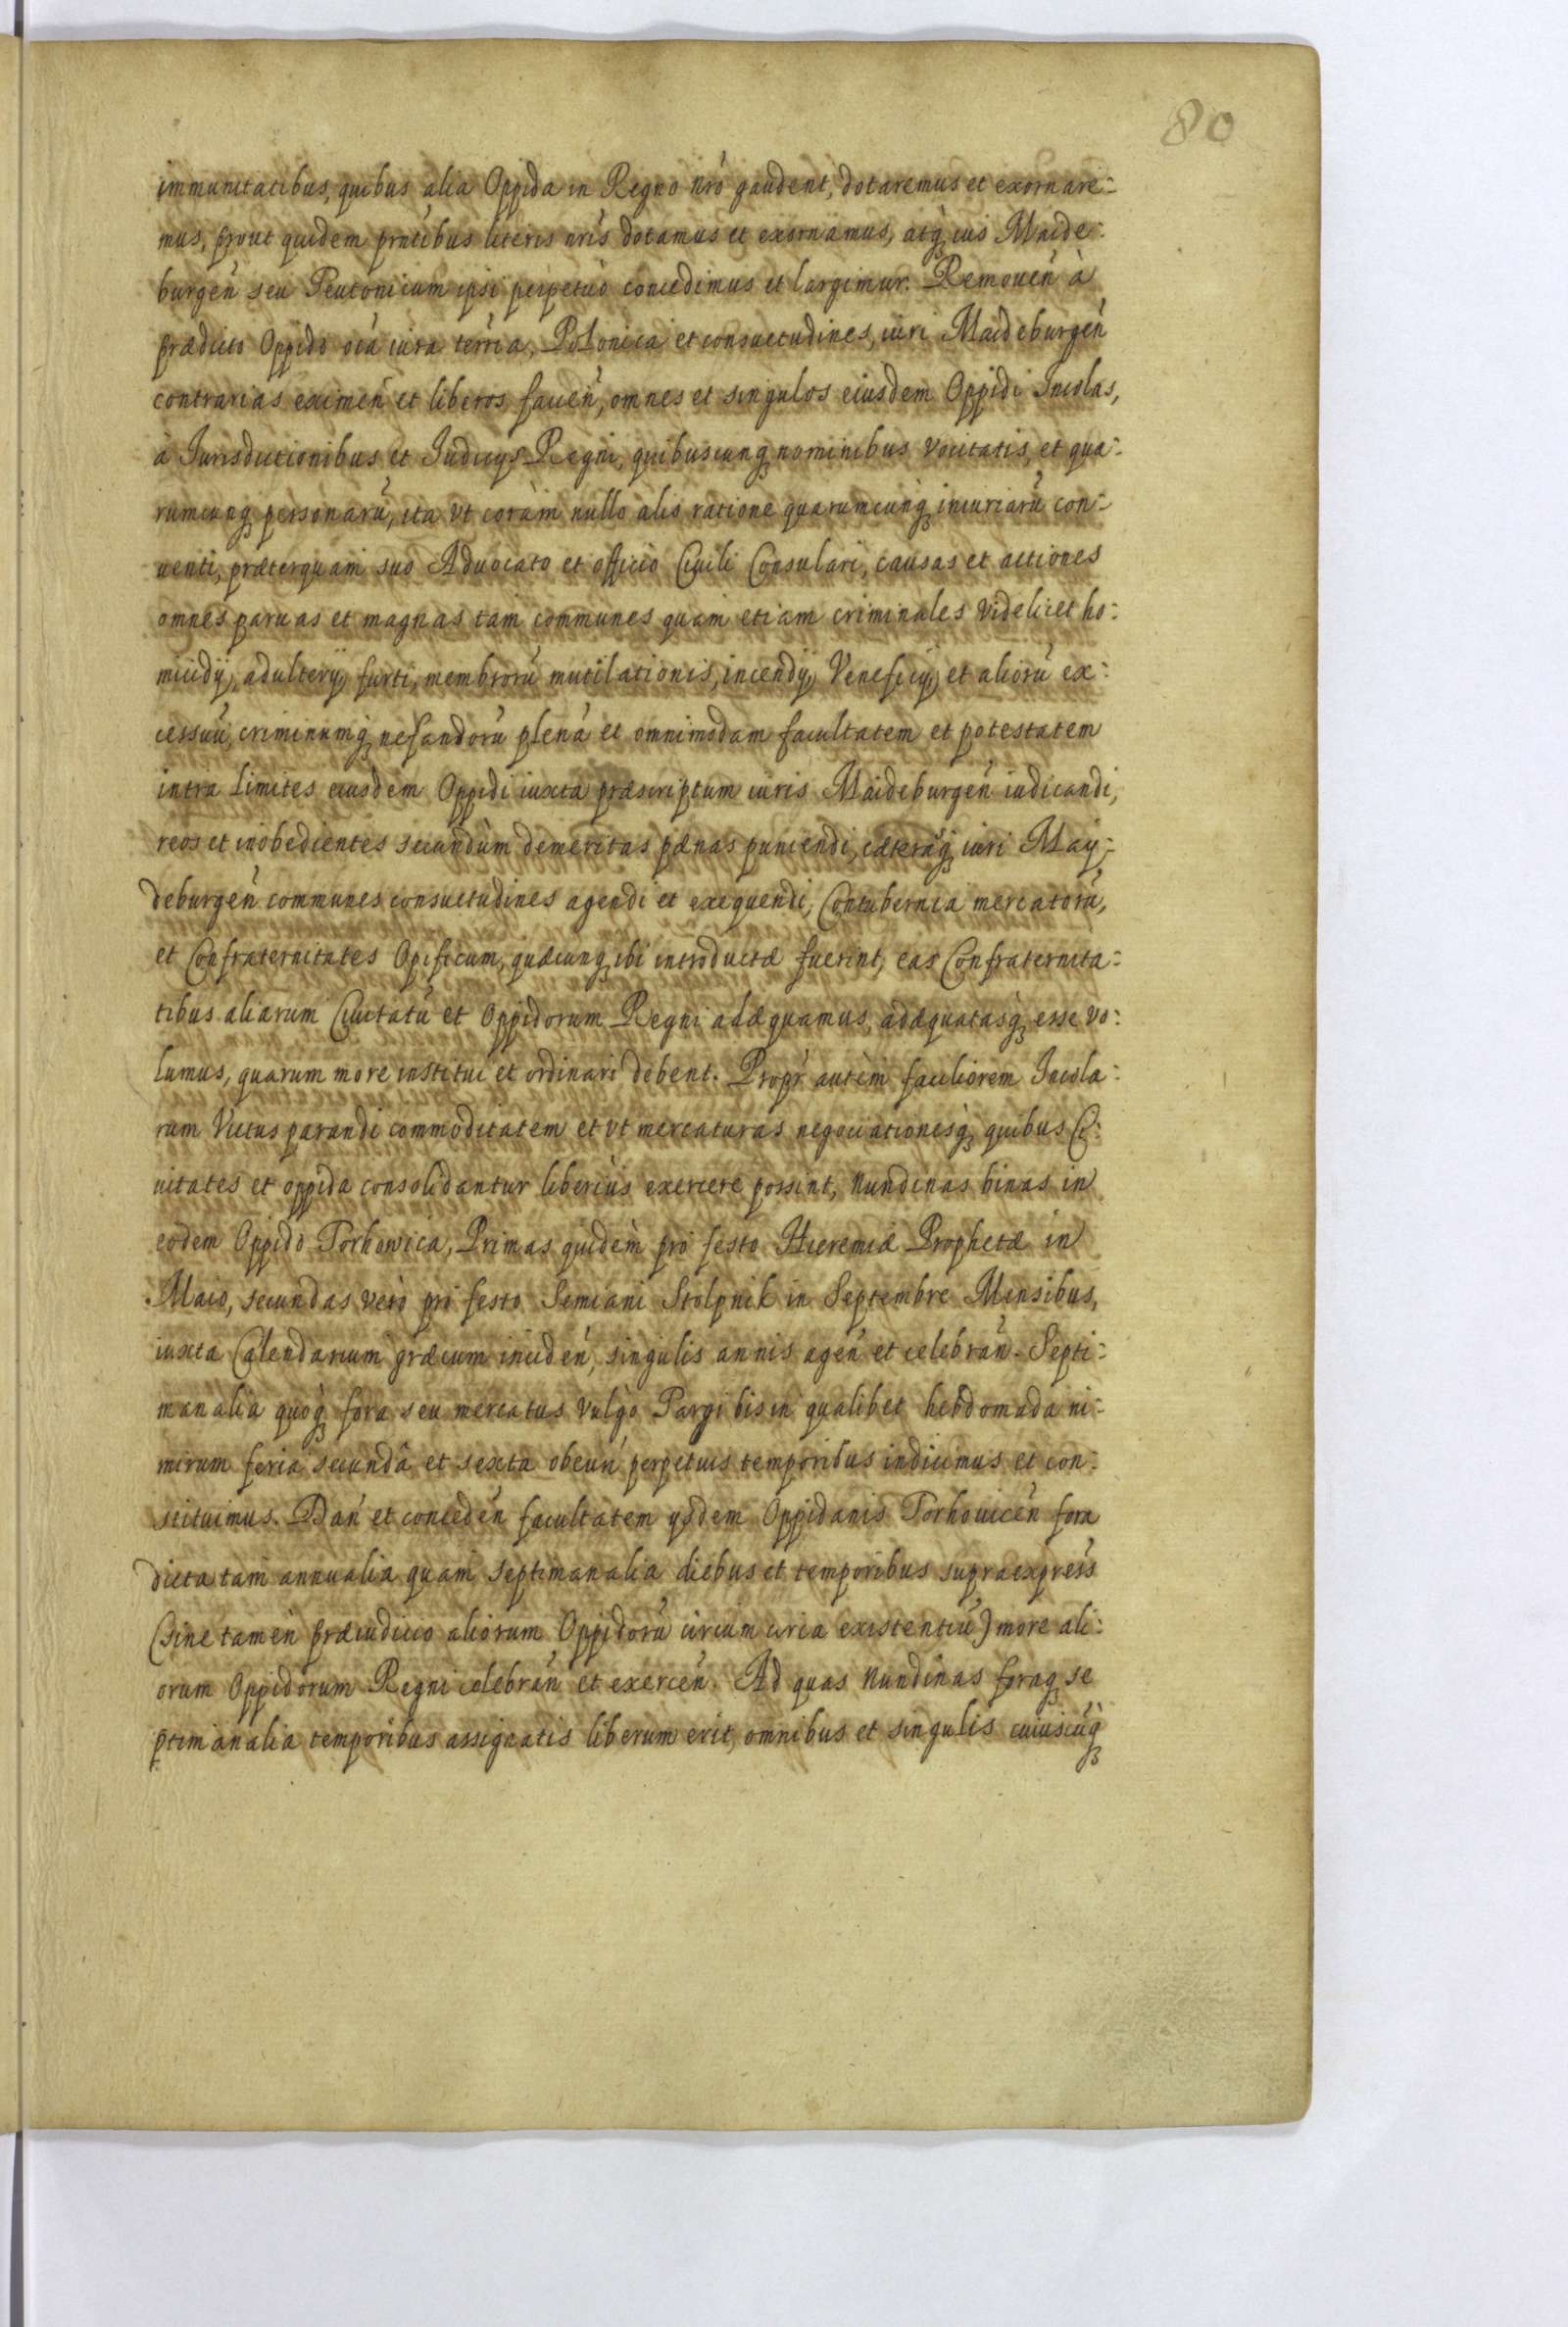 80
immunitatibus, quibus alia Oppida in Regno nrõ gaudent, dotaremus et exornare-
mus, prout quidem pntibus literis nris dotamus et exornamus, atq ius Maide-
burgeñ seu Teutonicum ipsi perpetuò concedimus et largimur. Remoueñ à
prædicto Oppido oĩa iura terrīa, Polonica et consuetudines, iuri Maideburgeñ
contrarias eximeñ et liberos facieñ, omnes et singulos eiusdem Oppidi Incolas,
à Jurisdictionibus et Judicys Regni, quibuscunq nominibus vocitatis, et qua-
rumcunq personarũ, ita vt coràm nullo alio ratione quarumcunq iniuriarũ con-
uenti, præterquam suo Aduocato et officio Ciuili Consulari, causas et actiones
omnes paruas et magnas tam communes quam etiam criminales videlicet ho-
micidij, adulterij, furti, membrorũ mutilationis, incendij, Veneficij, et aliorũ ex-
cessuũ, criminumq nefandorũ plenã et omnimodam facultatem et potestatem
intra limites eiusdem Oppidi iuxta præscriptum iuris Maideburgeñ iudicandi,
reos et inobedientes secundùm demeritas pænas puniendi, cæterasq iuri May-
deburgeñ communes consuetudines agendi et exequendi, Contubernia mercatorũ,
et Confraternitates Opificum, quæcunq ibi introductæ fuerint, eas Confraternita-
tibus aliarum Ciuitatũ et Oppidorum Regni adæquamus, adæquatasq esse vo-
lumus, quarum more institui et ordinari debent. Proptr autem faciliorem Incola-
rum Victus parandi commoditatem et vt mercaturas negociationesq quibus Ci-
uitates et oppida consolidantur liberius exercere possint, Nundinas binas in
eodem Oppido Torhowica, Primas quidèm pro festo Hieremiæ Prophetæ in
Maio, secundas verò pro festo Semiani Stolpnik in Septembre Mensibus,
iuxta Calendarium græcum incideñ, singulis annis ageñ et celebrañ. Septi-
manalia quoq fora seu mercatus vulgò Targi bis in qualibet hebdomada ni-
mirum feria secundâ et sexta obeuñ perpetuis temporibus indicimus et con-
stituimus. Dañ et concedeñ facultatem ysdem Oppidanis Torhouiceñ fora
dicta tam annualia quam septimanalia diebus et temporibus supraexpress
(sine tamen præiudicio aliorum Oppidorũ circum circa existentiũ) more ali-
orum Oppidorum Regni celebrañ et exerceñ. Ad quas Nundinas foraq se
ptimanalia temporibus assignatis liberum erit, omnibus et singulis cuiuscũq